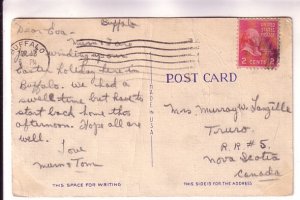 Buffalo
Dear Eva -
Mum & I are
winding up our
Easter holiday here in
Buffalo. We had a
swell time but have to
start back home this
afternoon. Hope all are
well.
Love
Mum & Tom
THIS SPACE FOR WRITING
BUFFALO
UNITED STATES
POSTAGE
2 CENTS 2
POST CARD
MADE IN USA
Mrs. Murray W.
Truro
R. R. # 5.
Nova Scotia
Canada
THIS SIDE IS FOR THE ADDRESS